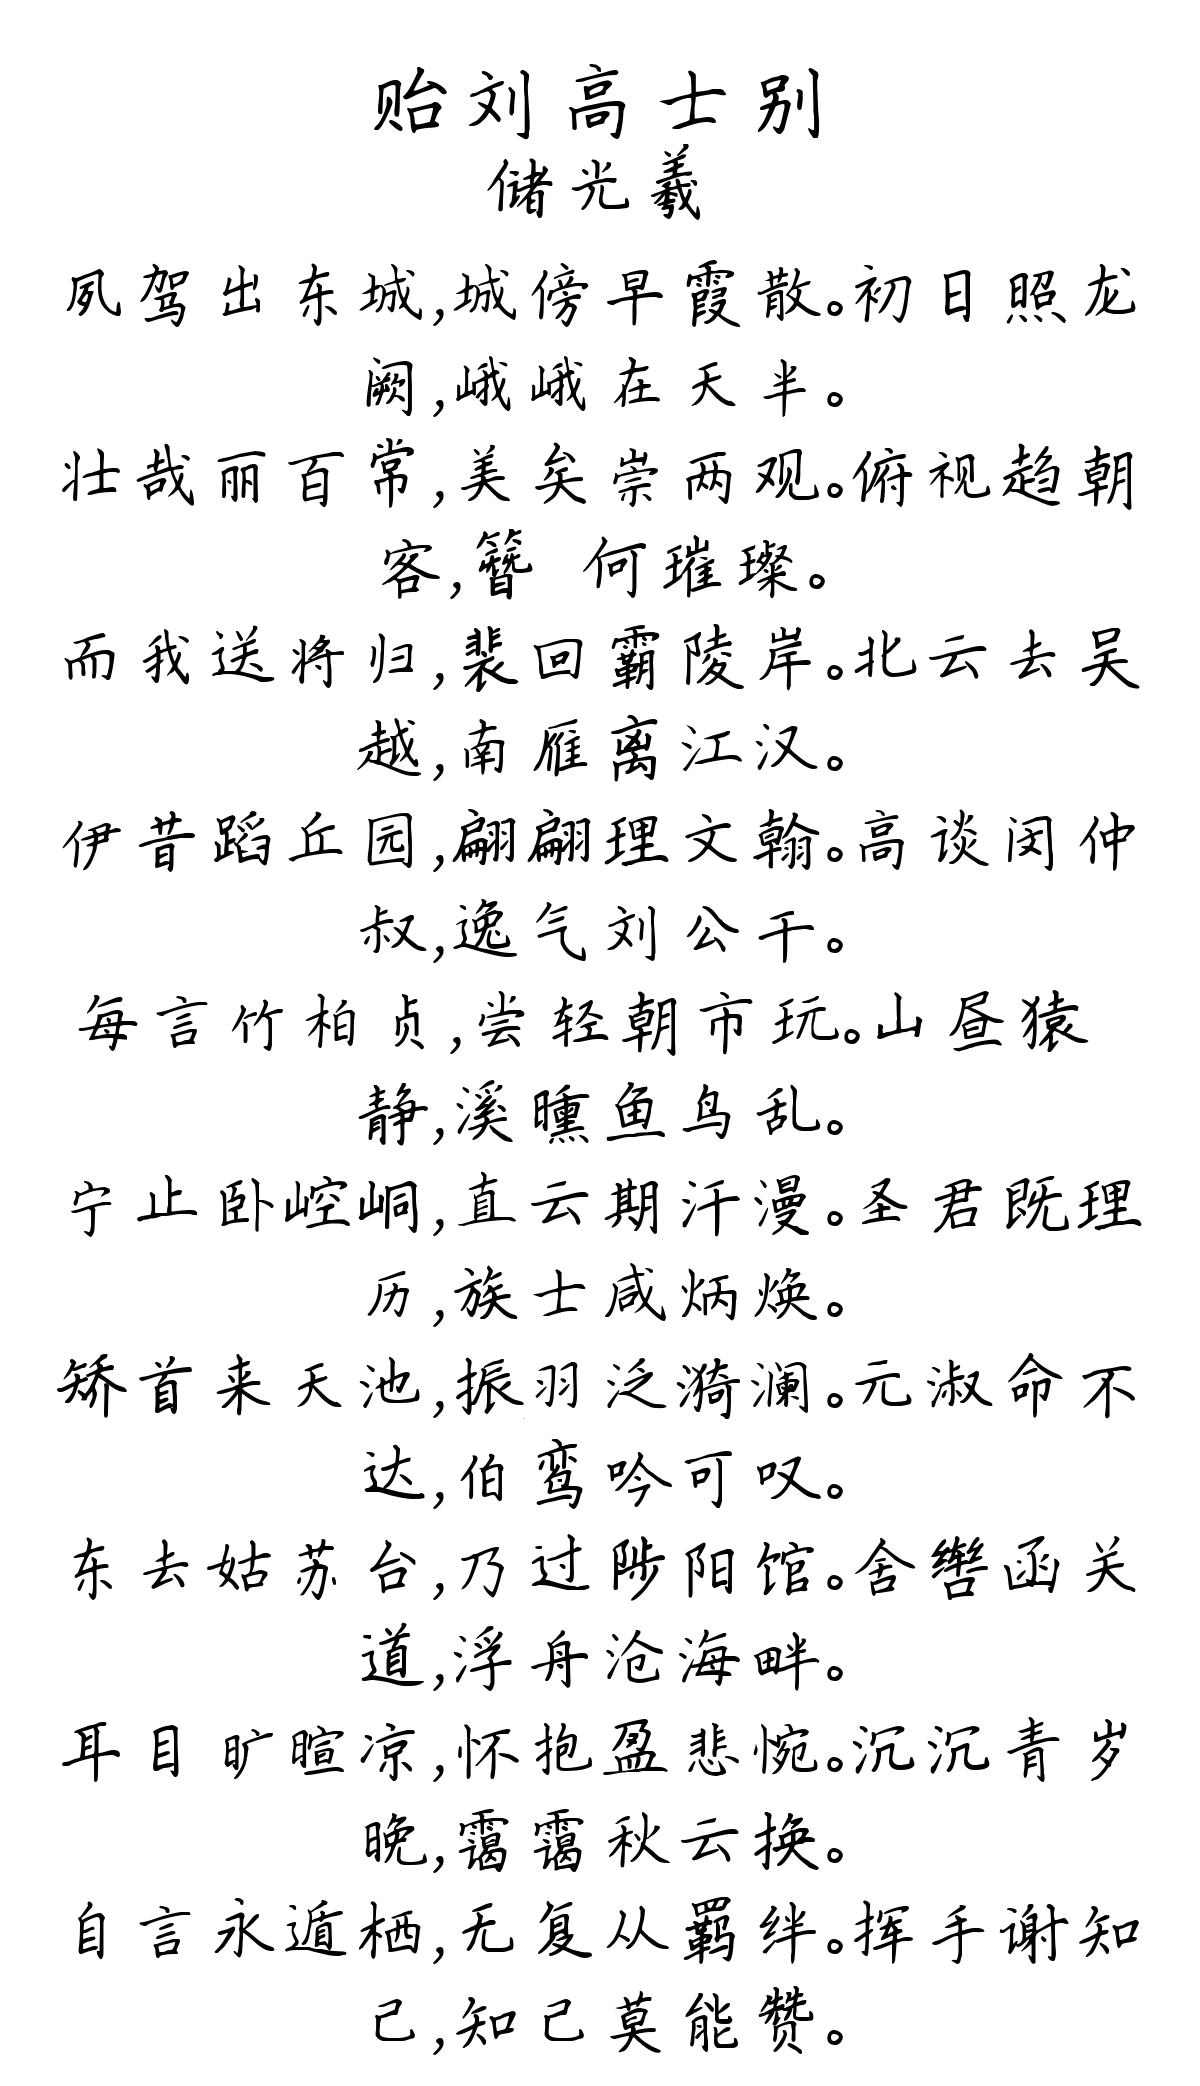 贻刘高士别
储光羲
夙驾出东城,城傍早霞散。初日照龙
阙,峨峨在天半。
壮哉丽百常,美矣崇两观。俯视趋朝
客,簪 何璀璨。
而我送将归,裴回霸陵岸。北云去吴
越,南雁离江汉。
伊昔蹈丘园,翩翩理文翰。高谈闵仲
叔,逸气刘公干。
每言竹柏贞,尝轻朝市玩。山昼猿
静,溪曛鱼鸟乱。
宁止卧崆峒,直云期汗漫。圣君既理
历,族士咸炳焕。
矫首来天池,振羽泛漪澜。元淑命不
达,伯鸾吟可叹。
东去姑苏台,乃过陟阳馆。舍辔函关
道,浮舟沧海畔。
耳目旷暄凉,怀抱盈悲惋。沉沉青岁
晚,霭霭秋云换。
自言永遁栖,无复从羁绊。挥手谢知
己,知己莫能赞。